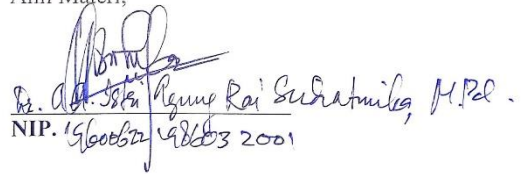 Ahli Materi,
Dr. A.A. Istri Ngurah Rai Sudiatmika, M.Pd.
NIP. 19600622 198603 2001